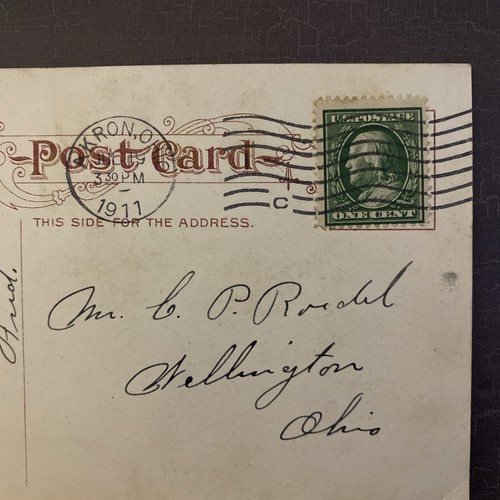 Post Card
AKRON, O.
3 30 PM
1911
C
U.S. POSTAGE
ONE CENT
THIS SIDE FOR THE ADDRESS.
Mr. C. P. Roedel
Wellington
Ohio